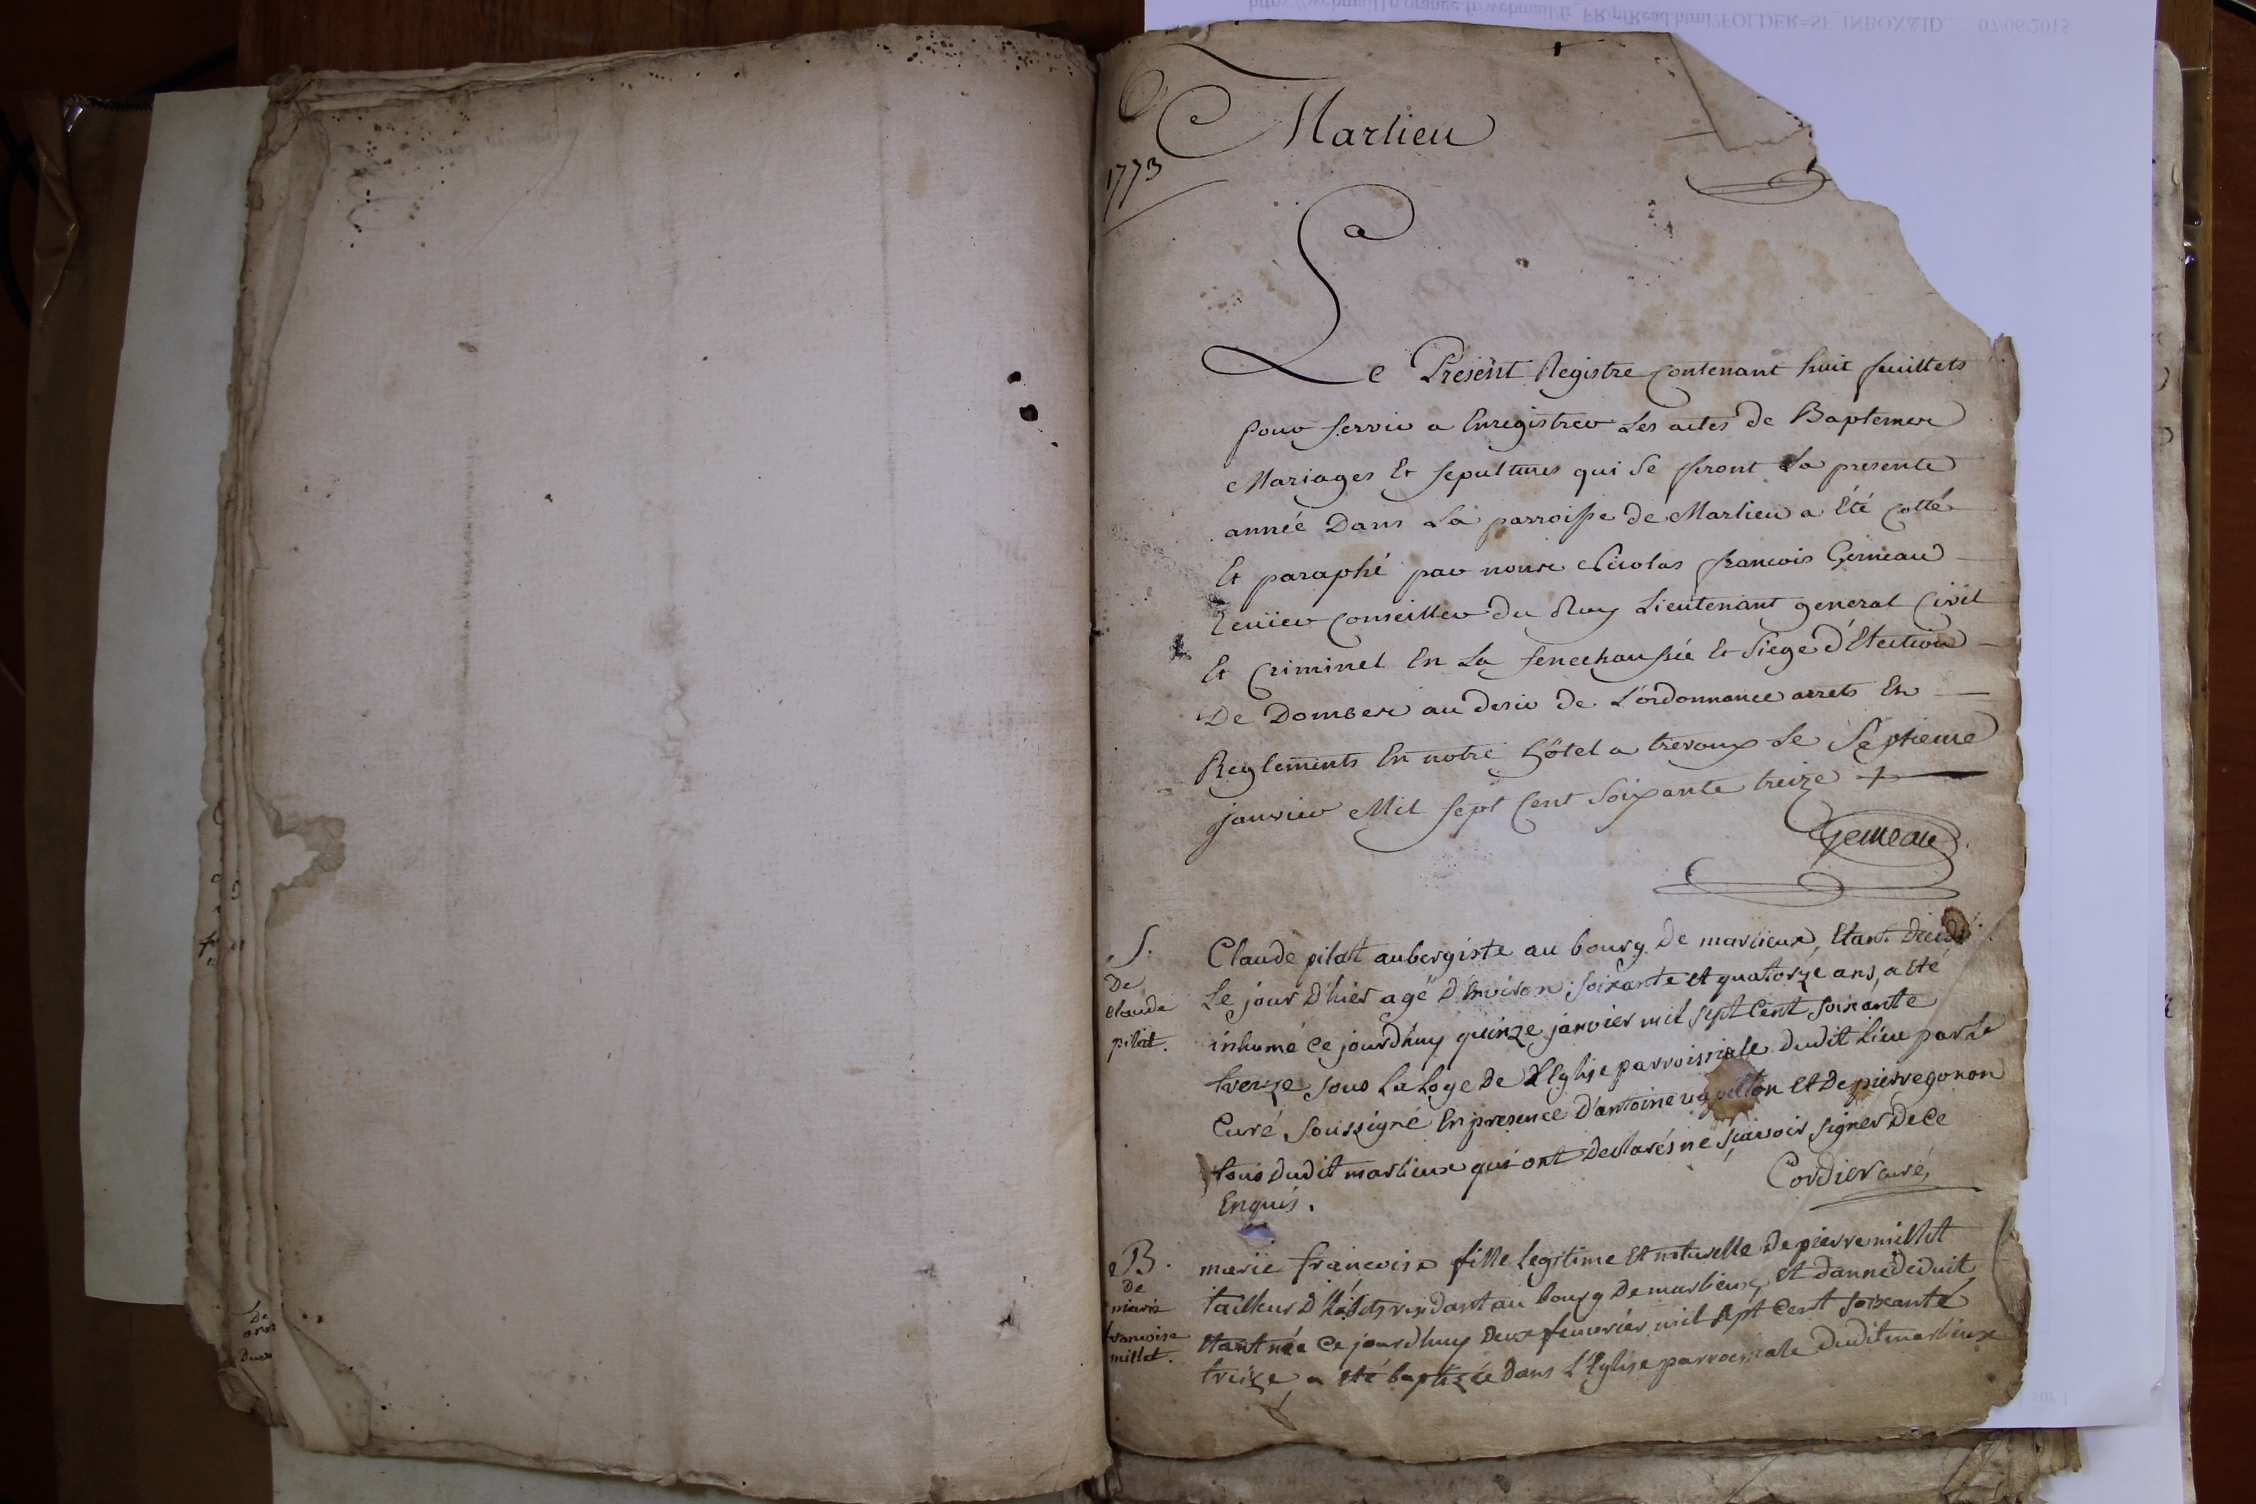 Marlieu
1773
Le Présent Registre Contenant huit feuillets
pour servir a Enregistrer Les actes de Baptemes
Mariages Et sepultures qui Se feront La presente
année Dans La parroisse de Marlieu a Été Cotté
Et paraphé par nous Nicolas francois Gemeau
Ecuier Conseiller du Roy Lieutenant general Civil
Et Criminel En La senechaussée Et Siege d'Election
De Dombes au desir de L'ordonnance arrets Et
Reglements En notre hôtel a trevoux Le Septieme
janvier Mil sept Cent Soixante treize
Gemeau
S.
De
claude
pilat.
Claude pilat aubergiste au bourg De marlieux, Etant decedé
Le jour D'hier agé D'Environ soixante et quatorze ans, a été
inhumé ce jourd'huy quinze janvier mil sept cent soixante
treize sous La Loge De L'Eglise parroissiale dudit Lieu par Le
Curé soussigné En presence D'antoine et De pierre gonon
tous dudit marlieux qui ont declarés ne sçavoir signer De ce
Enquis.
Cordier curé
B.
De
marie
francoise
millet.
marie francoise fille Legitime Et naturelle De pierre millet
tailleur D'habits residant au bourg De marlieux, et d'anne deduit
Etant née ce jourd'huy deux fevrier mil sept cent soixante
treize, a été baptizée dans L'Eglise parroissiale dudit marlieux